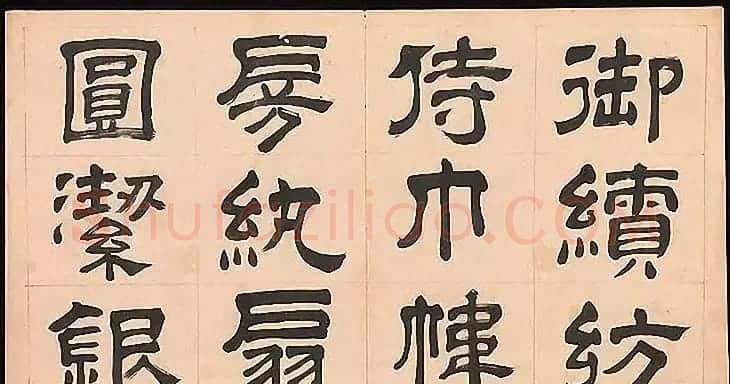 御續紡
侍巾帷
房紈扇
圓潔銀
shufaziliao.COM